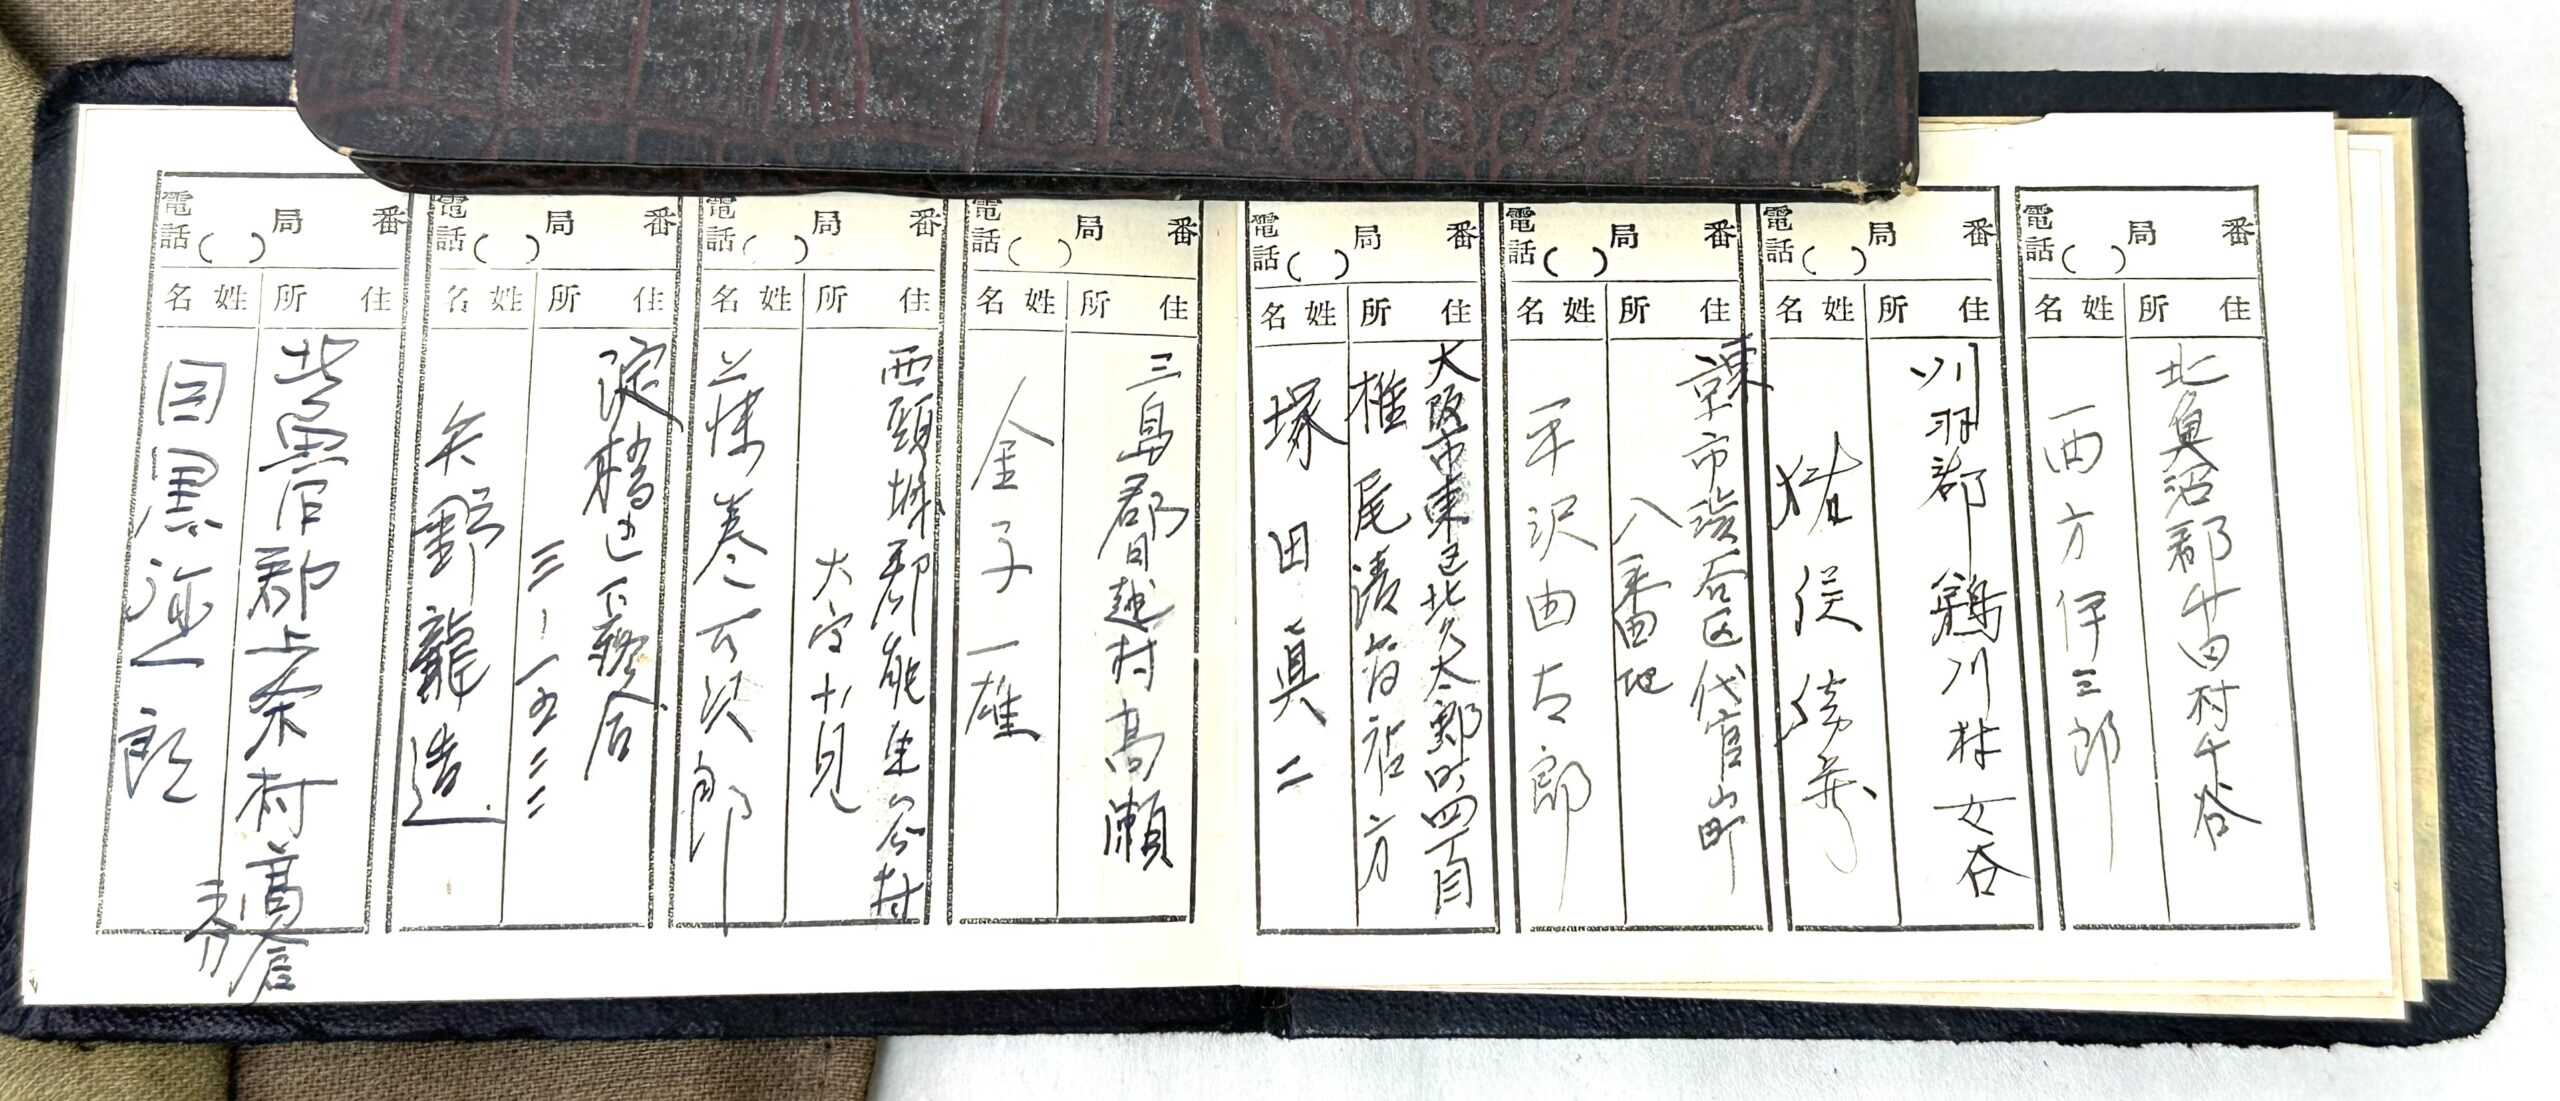 電話( )局 番
住所 姓名
北魚沼郡廿田村千谷
西方伊三郎
電話( )局 番
住所 姓名
刈羽郡鵜川村女谷
猪俣
電話( )局 番
住所 姓名
東京市渋谷区代官山町
八番地
平沢由太郎
電話( )局 番
住所 姓名
大阪市東区北久太郎町四丁目
方
塚田眞二
電話( )局 番
住所 姓名
三島郡日越村高瀬
金子一雄
電話( )局 番
住所 姓名
西頸城郡能生谷村
大字
電話( )局 番
住所 姓名
淀橋区下落合
三ー一五二二
矢野龍造
電話( )局 番
住所 姓名
北魚沼郡上条村
目黒弥一郎